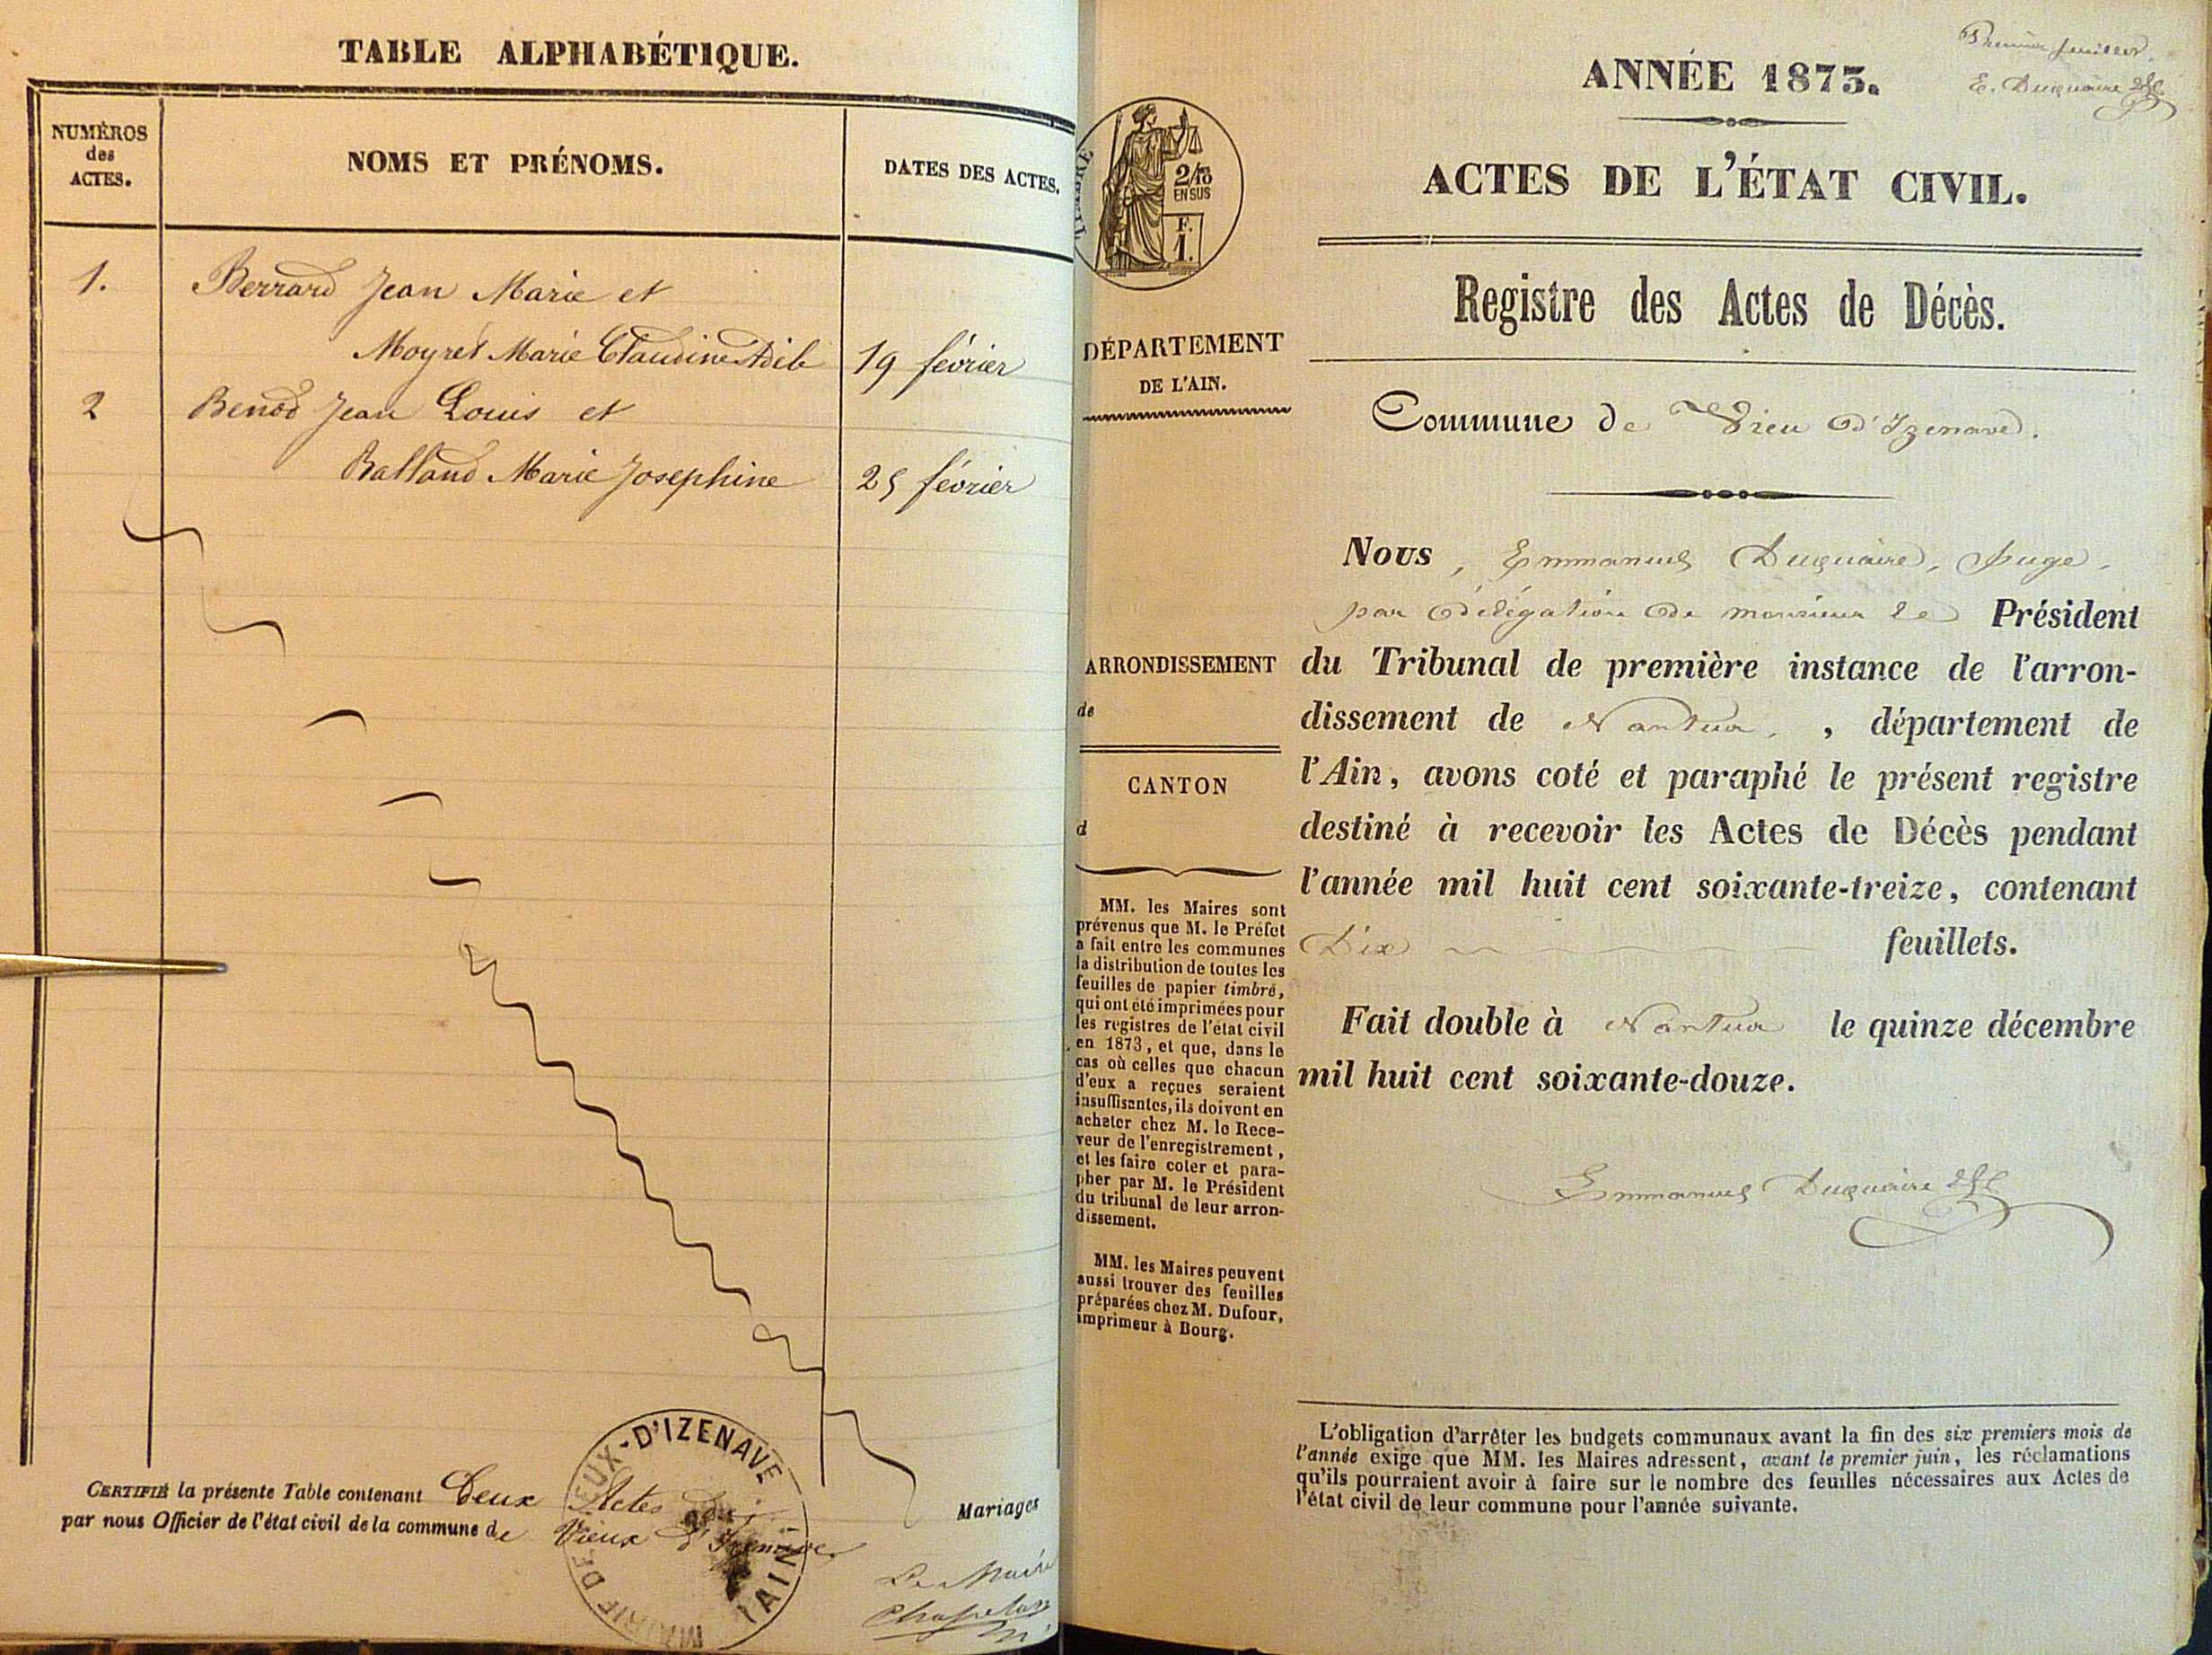 TABLE ALPHABÉTIQUE.
NUMÉROS
des
ACTES.
NOMS ET PRÉNOMS.
DATES DES ACTES.
1. Berrard Jean Marie et
Moyret Marie Claudine Adèle 19 février
2 Benod Jean Louis et
Balland Marie Josephine 25 février
CERTIFIÉ la présente Table contenant Deux Actes de Mariages
par nous Officier de l'état civil de la commune de Vieux d'Izenave
MAIRIE DE VIEUX-D'IZENAVE (AIN)
Le Maire
Premier feuillet.
E. Duquaire
ANNÉE 1873.
ACTES DE L'ÉTAT CIVIL.
2/10
EN SUS
F.
1.
Registre des Actes de Décès.
DÉPARTEMENT
DE L'AIN.
Commune de Vieu d'Izenave.
Nous, Emmanuel Duquaire, Juge,
par délégation de monsieur le Président
du Tribunal de première instance de l'arron-
dissement de Nantua, , département de
l'Ain, avons coté et paraphé le présent registre
destiné à recevoir les Actes de Décès pendant
l'année mil huit cent soixante-treize, contenant
Dix feuillets.
Fait double à Nantua le quinze décembre
mil huit cent soixante-douze.
Emmanuel Duquaire
ARRONDISSEMENT
de
CANTON
d
MM. les Maires sont
prévenus que M. le Préfet
a fait entre les communes
la distribution de toutes les
feuilles de papier timbré,
qui ont été imprimées pour
les registres de l'état civil
en 1873, et que, dans le
cas où celles que chacun
d'eux a reçues seraient
insuffisantes, ils doivent en
acheter chez M. le Rece-
veur de l'enregistrement,
et les faire coter et para-
pher par M. le Président
du tribunal de leur arron-
dissement.
MM. les Maires peuvent
aussi trouver des feuilles
préparées chez M. Dufour,
imprimeur à Bourg.
L'obligation d'arrêter les budgets communaux avant la fin des six premiers mois de
l'année exige que MM. les Maires adressent, avant le premier juin, les réclamations
qu'ils pourraient avoir à faire sur le nombre des feuilles nécessaires aux Actes de
l'état civil de leur commune pour l'année suivante.